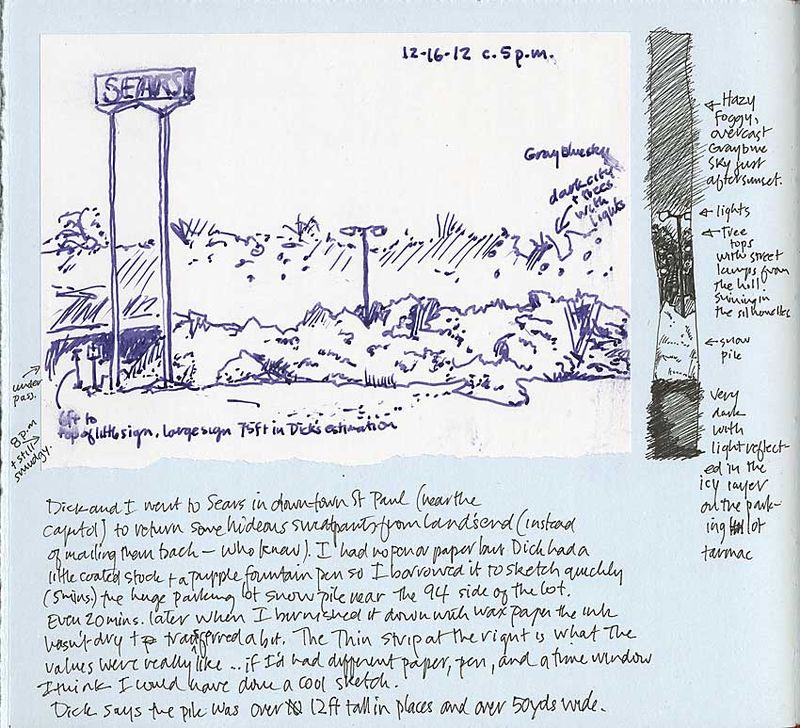 12-16-12 c. 5 p.m.
SEARS
Gray blue sky
dark city
+ trees
with
lights
6ft to
top of little sign, large sign 75ft in Dick's estimation
under
pass.
8 p.m
+ still
smudgy.
Hazy
Foggy,
overcast
Grayblue
Sky just
after sunset.
lights
Tree
tops
with street
lamps from
the hill
shining in
the silhouettes
snow
pile
Very
dark
with
light reflect-
ed in the
icy layer
on the park-
ing lot
tarmac
Dick and I went to Sears in down-town St Paul (near the
capitol) to return some hideous sweatpants from Land's end (instead
of mailing them back — who knew). I had no pen or paper but Dick had a
little coated stock + a purple fountain pen so I borrowed it to sketch quickly
(5mins.) the huge parking lot snow pile near the 94 side of the lot.
Even 20 mins. later when I burnished it down with wax paper the ink
wasn't dry + transferred a bit. The Thin strip at the right is what the
values were really like ... if I'd had different paper, pen, and a time window
I think I would have done a cool sketch.
Dick says the pile was over 12ft tall in places and over 50yds wide.